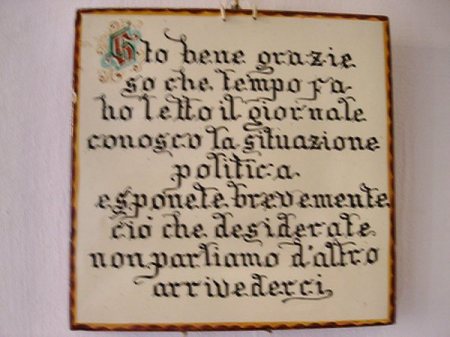 Sto bene grazie
so che tempo fa
ho letto il giornale
conosco la situazione
politica
esponete brevemente
ciò che desiderate
non parliamo d'altro
arrivederci